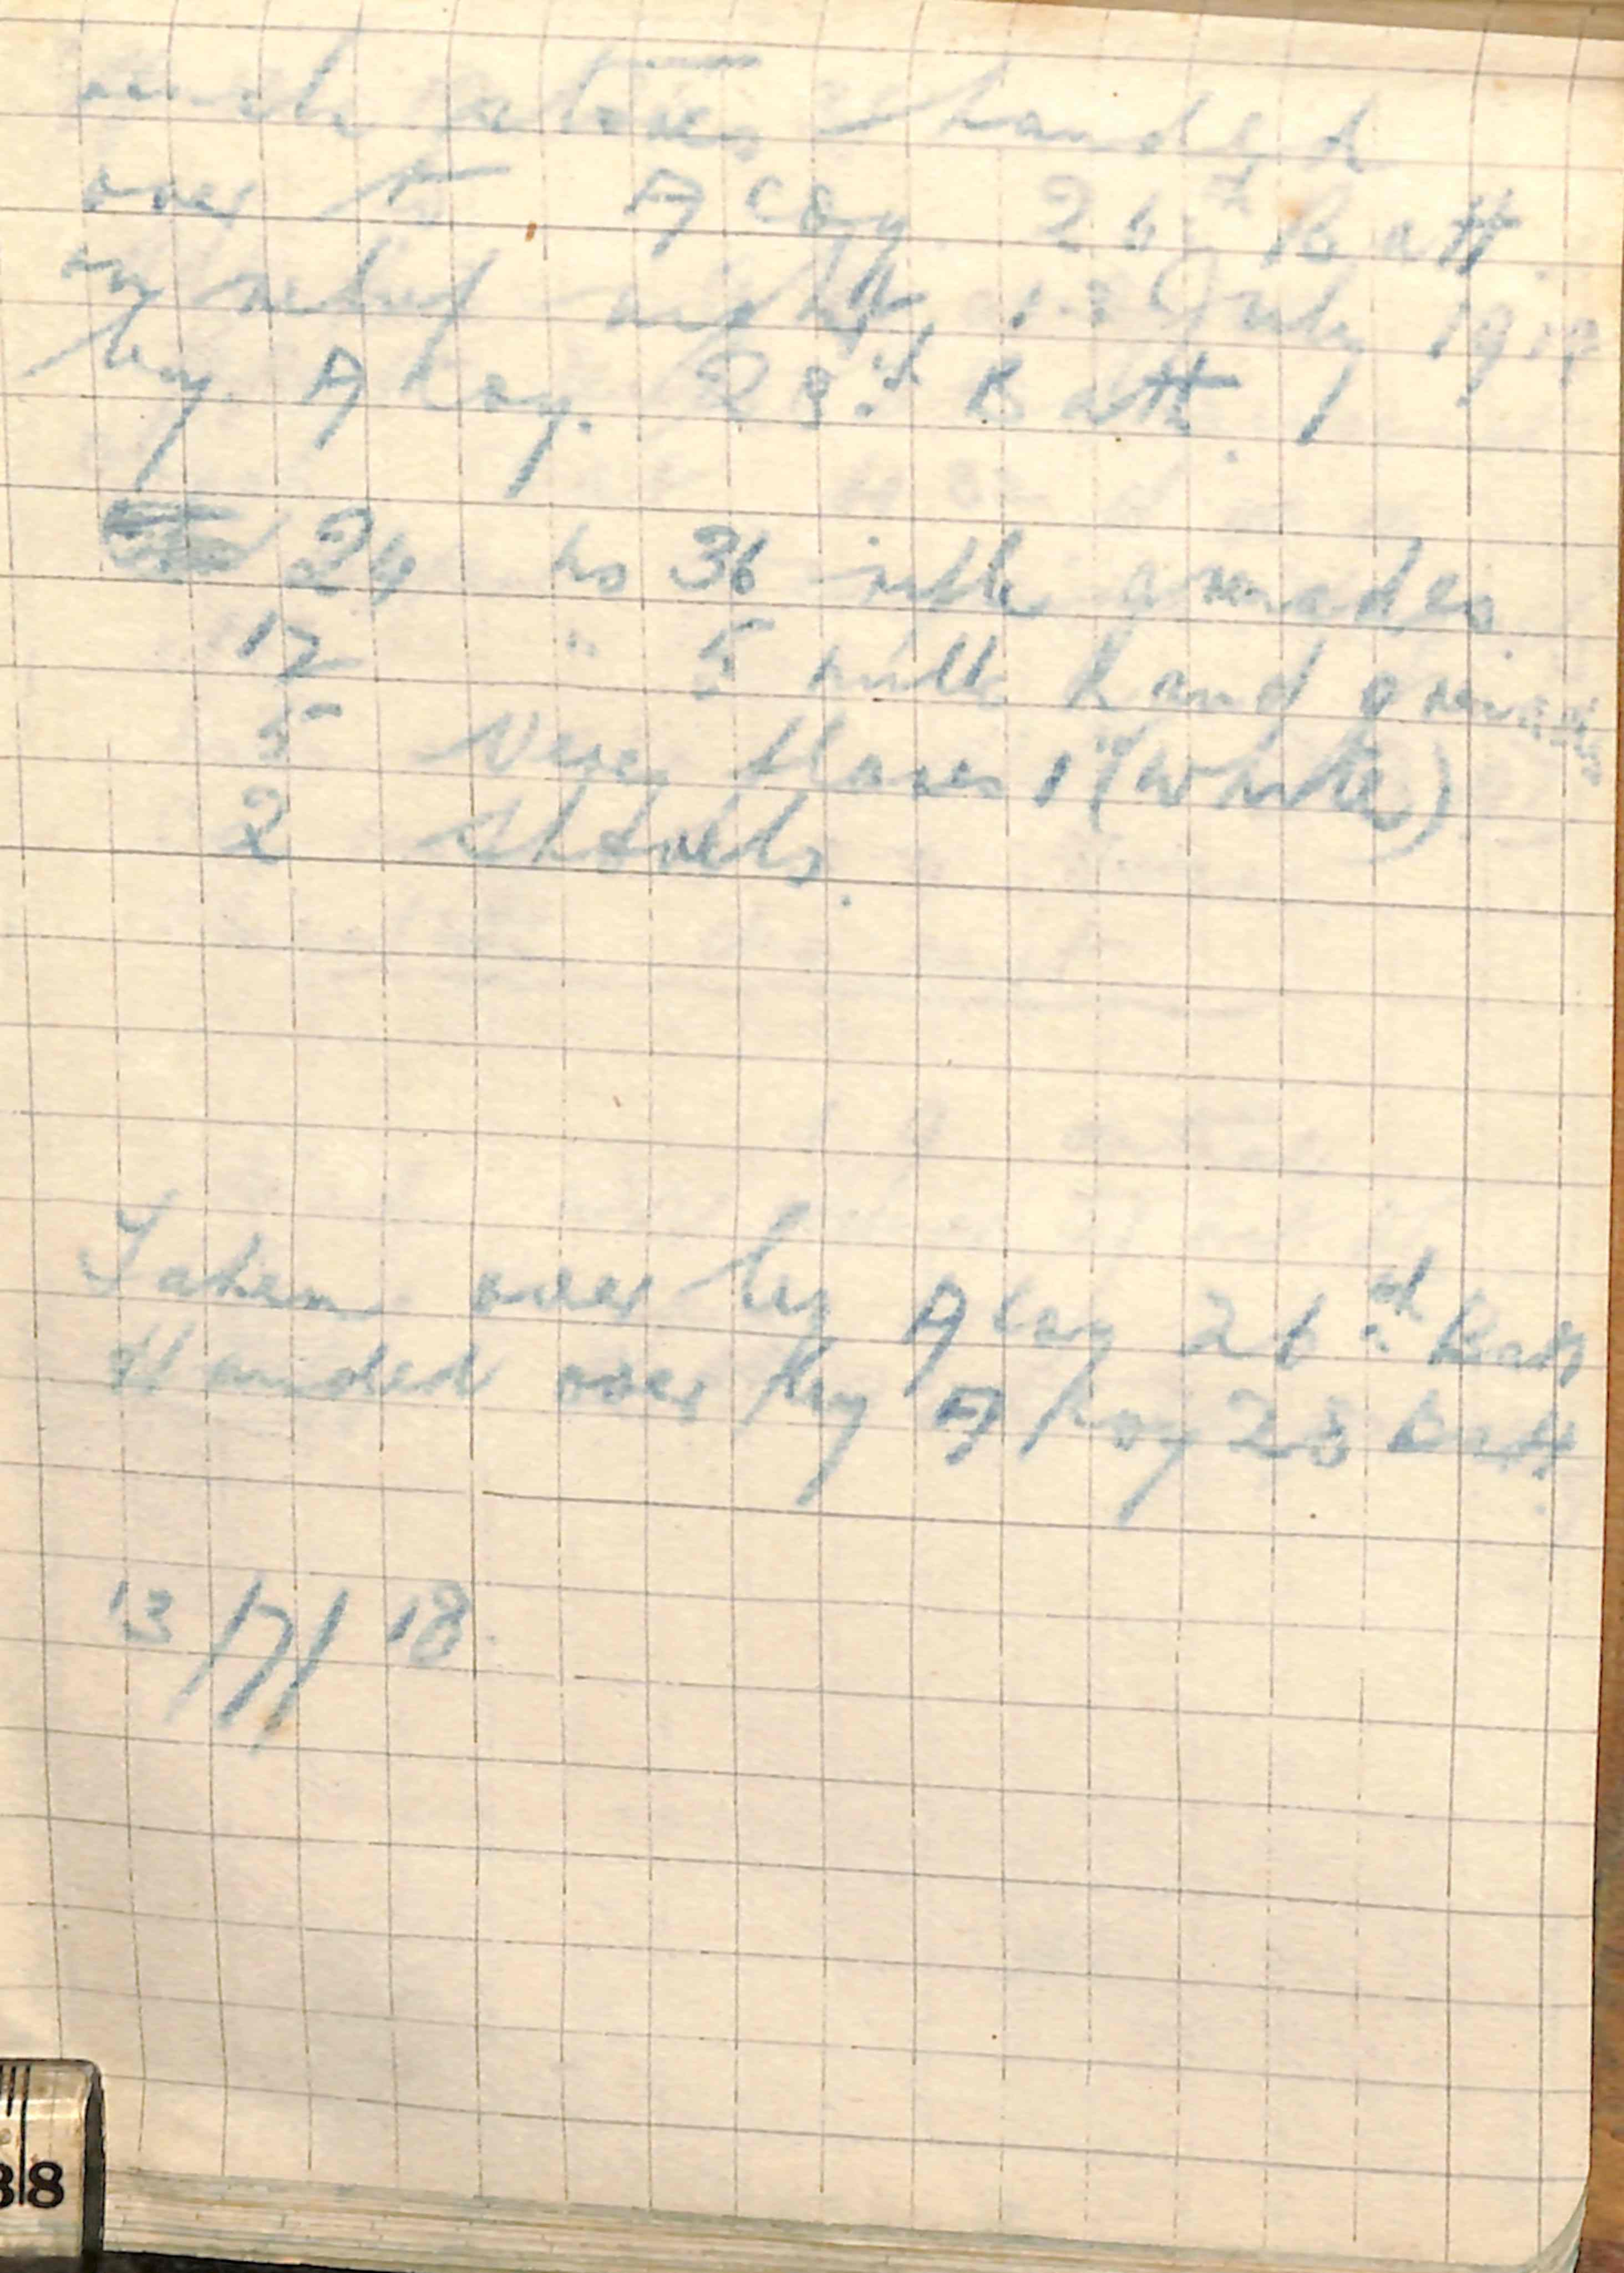 stores handed
over to A Coy 26th Batt.
on relief night July 19
by A Coy. 28th Batt.
24 No 36 rifle grenades
12 " 5 mills hand grenades
5 Verey flares 1" (white)
2 shovels.
Taken over by A Coy 26th Batt
Handed over by A Coy 28 Batt.
13/7/18.
38